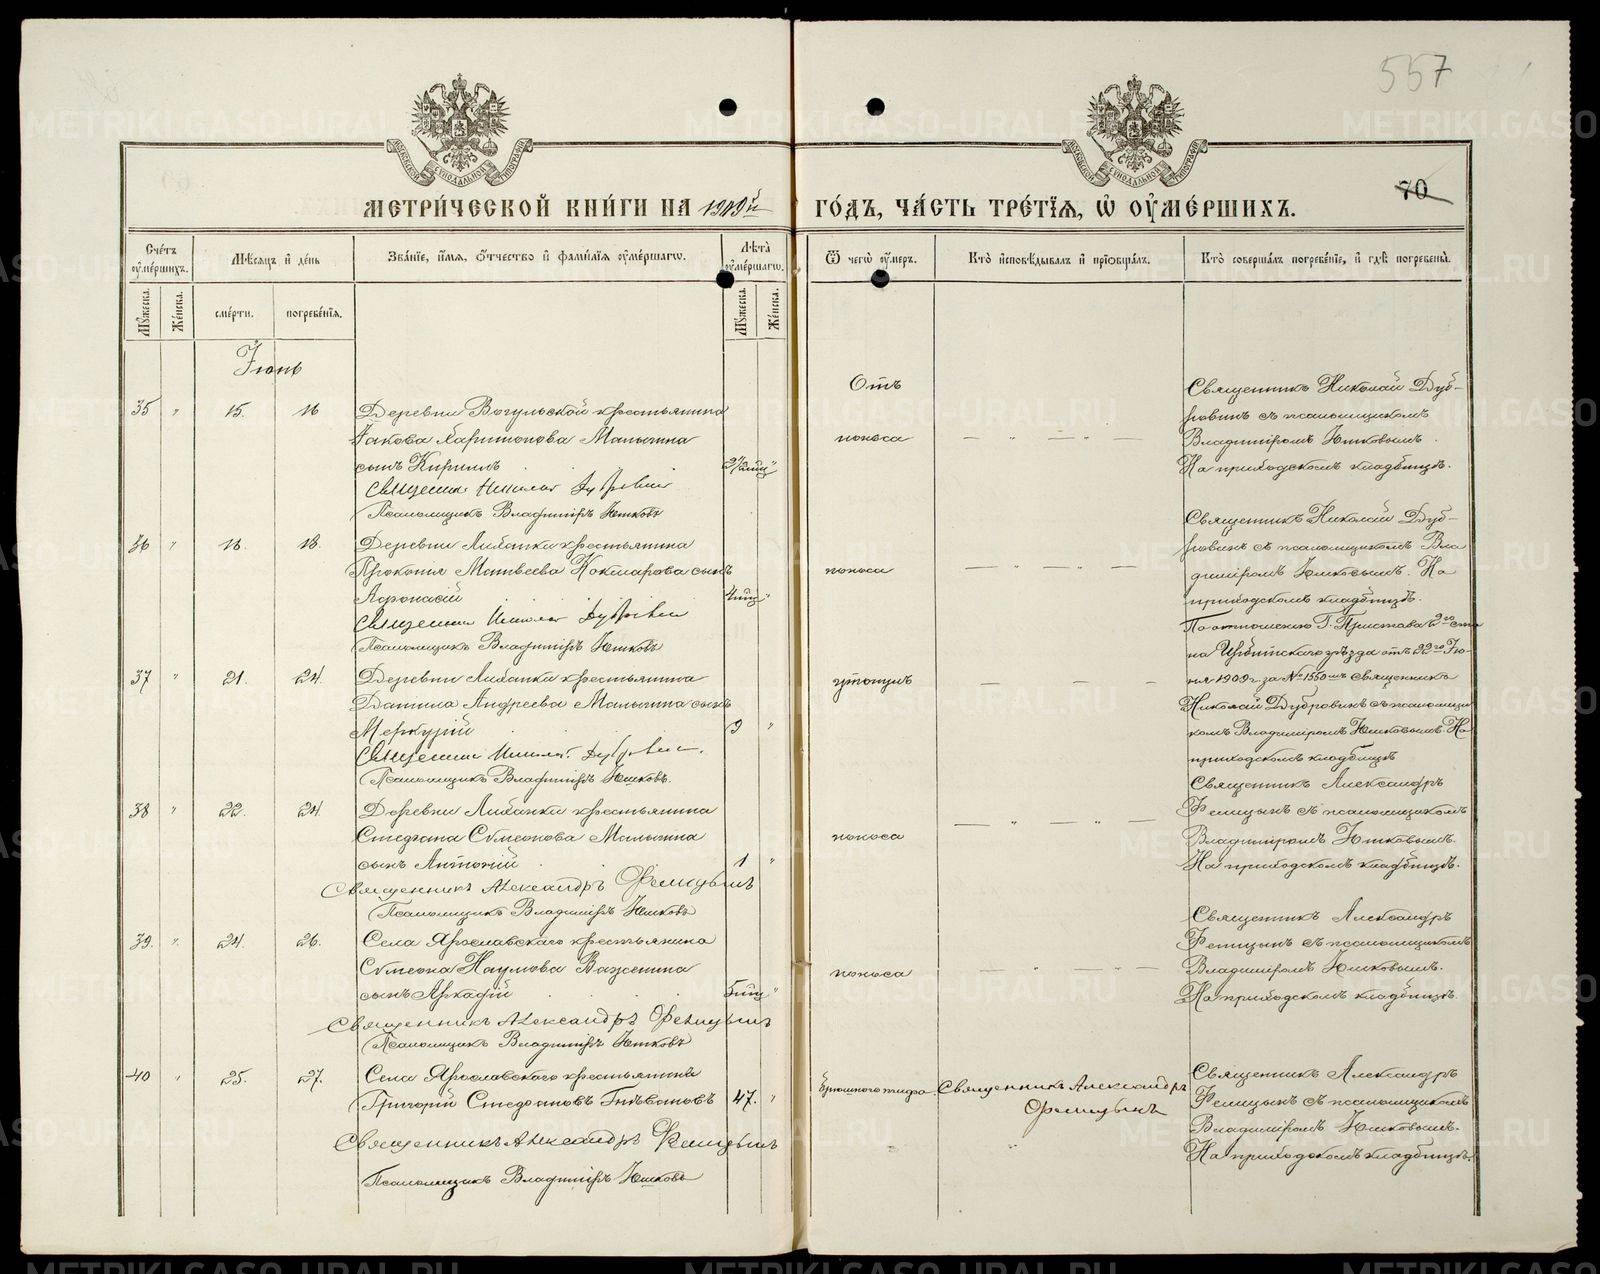 557
МОСКОВСКОЙ СѴНОДАЛЬНОЙ ТИПОГРАФІИ
МОСКОВСКОЙ СѴНОДАЛЬНОЙ ТИПОГРАФІИ
МЕТРИ́ЧЕСКОЙ КНИ́ГИ НА 1909й
ГО́ДЪ, ЧА́СТЬ ТРЕ́ТІѦ, Ѡ ОУМЕ́РШИХЪ.
70
Сче́тъ оуме́ршихъ.
Мѣ́сяцъ и де́нь
Зва́нїе, и́мѧ, ѻ́тчество и фами́лїѧ оуме́ршагѡ.
Лѣ́та оуме́ршагѡ.
Ѿ чегѡ̀ оу́меръ.
Кто̀ исповѣ́дывалъ и прїобща́лъ.
Кто̀ соверша́лъ погребе́нїе, и гдѣ̀ погребены̀.
Мꙋ́жеска.
Же́нска.
сме́рти.
погребе́нїѧ.
Мꙋ́жеска.
Же́нска.
Іюнь
35 " 15. 16
Деревни Вогульской крестьянина
Іакова Харитонова Малыгина
сынъ Кириллъ
Священник Николай Дубровин
Псаломщикъ Владиміръ Юшковъ
Отъ
поноса
Священникъ Николай Дуб-
ровинъ съ псаломщикомъ
Владиміромъ Юшковымъ.
На приходскомъ кладбищѣ.
36 " 16. 18.
Деревни Лиханки крестьянина
Прокопія Матвѣева Кокшарова сынъ
Аѳонасій
4 мѣц "
Священник Николай Дубровин
Псаломщикъ Владиміръ Юшковъ
поноса
Священникъ Николай Дуб-
ровинъ съ псаломщикомъ Вла
диміромъ Юшковымъ. На
приходскомъ кладбищѣ.
37 " 21. 24.
Деревни Лиханки крестьянина
Данила Андреева Малыгина сынъ
Меркурій
3 "
Священник Николай Дубровин.
Псаломщикъ Владиміръ Юшковъ.
утонулъ
По отношенію Г. Пристава 2го ста
на Ирбитскаго уѣзда отъ 22го Ію-
ня 1909 г за № 1550мъ Священникъ
Николай Дубровинъ съ псаломщи
комъ Владиміромъ Юшковымъ. На
приходскомъ кладбищѣ
38 " 22. 24.
Деревни Лиханки крестьянина
Стефана Сѵмеонова Малыгина
сынъ Антоній
1 "
Священникъ Александръ Фелицынъ
Псаломщикъ Владиміръ Юшковъ
поноса
Священникъ Александръ
Фелицынъ съ псаломщикомъ
Владиміромъ Юшковымъ.
На приходскомъ кладбищѣ.
39. " 24. 26.
Села Ярославскаго крестьянина
Сѵмеона Наумова Важенина
сынъ Аркадій
5 мѣц "
Священникъ Александръ Фелицынъ
Псаломщикъ Владиміръ Юшковъ
поноса
Священникъ Александръ
Фелицынъ съ псаломщикомъ
Владиміромъ Юшковымъ.
На приходскомъ кладбищѣ.
40 " 25. 27.
Села Ярославскаго крестьянинъ
Григорій Стефановъ Гнѣвановъ
47. "
Священникъ Александръ Фелицынъ
Псаломщикъ Владиміръ Юшковъ
брюшного тифа
Священникъ Александръ
Фелицынъ
Священникъ Александръ
Фелицынъ съ псаломщикомъ
Владиміромъ Юшковымъ.
На приходскомъ кладбищѣ.
METRIKI.GASO-URAL.RU